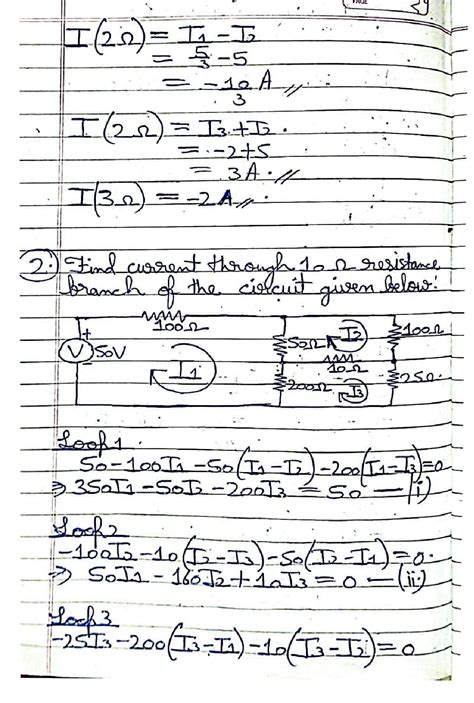 I(2Ω) = I1 - I2
= 5/3 - 5
= -10/3 A //
I(2Ω) = I3 + I2.
= -2+5
= 3A. //
I(3Ω) = -2A //.
2. Find current through 10 Ω resistance
branch of the circuit given below:
100Ω
+
V 50V
-
I1
50Ω
I2
100Ω
10Ω
200Ω
I3
25Ω
Loop 1
50-100I1-50(I1-I2)-200(I1-I3)=0
⇒ 350I1-50I2-200I3 = 50 — (i)
Loop 2
-100I2-10(I2-I3)-50(I2-I1)=0.
⇒ 50I1-160I2+10I3=0 — (ii)
Loop 3
-25I3-200(I3-I1)-10(I3-I2)=0